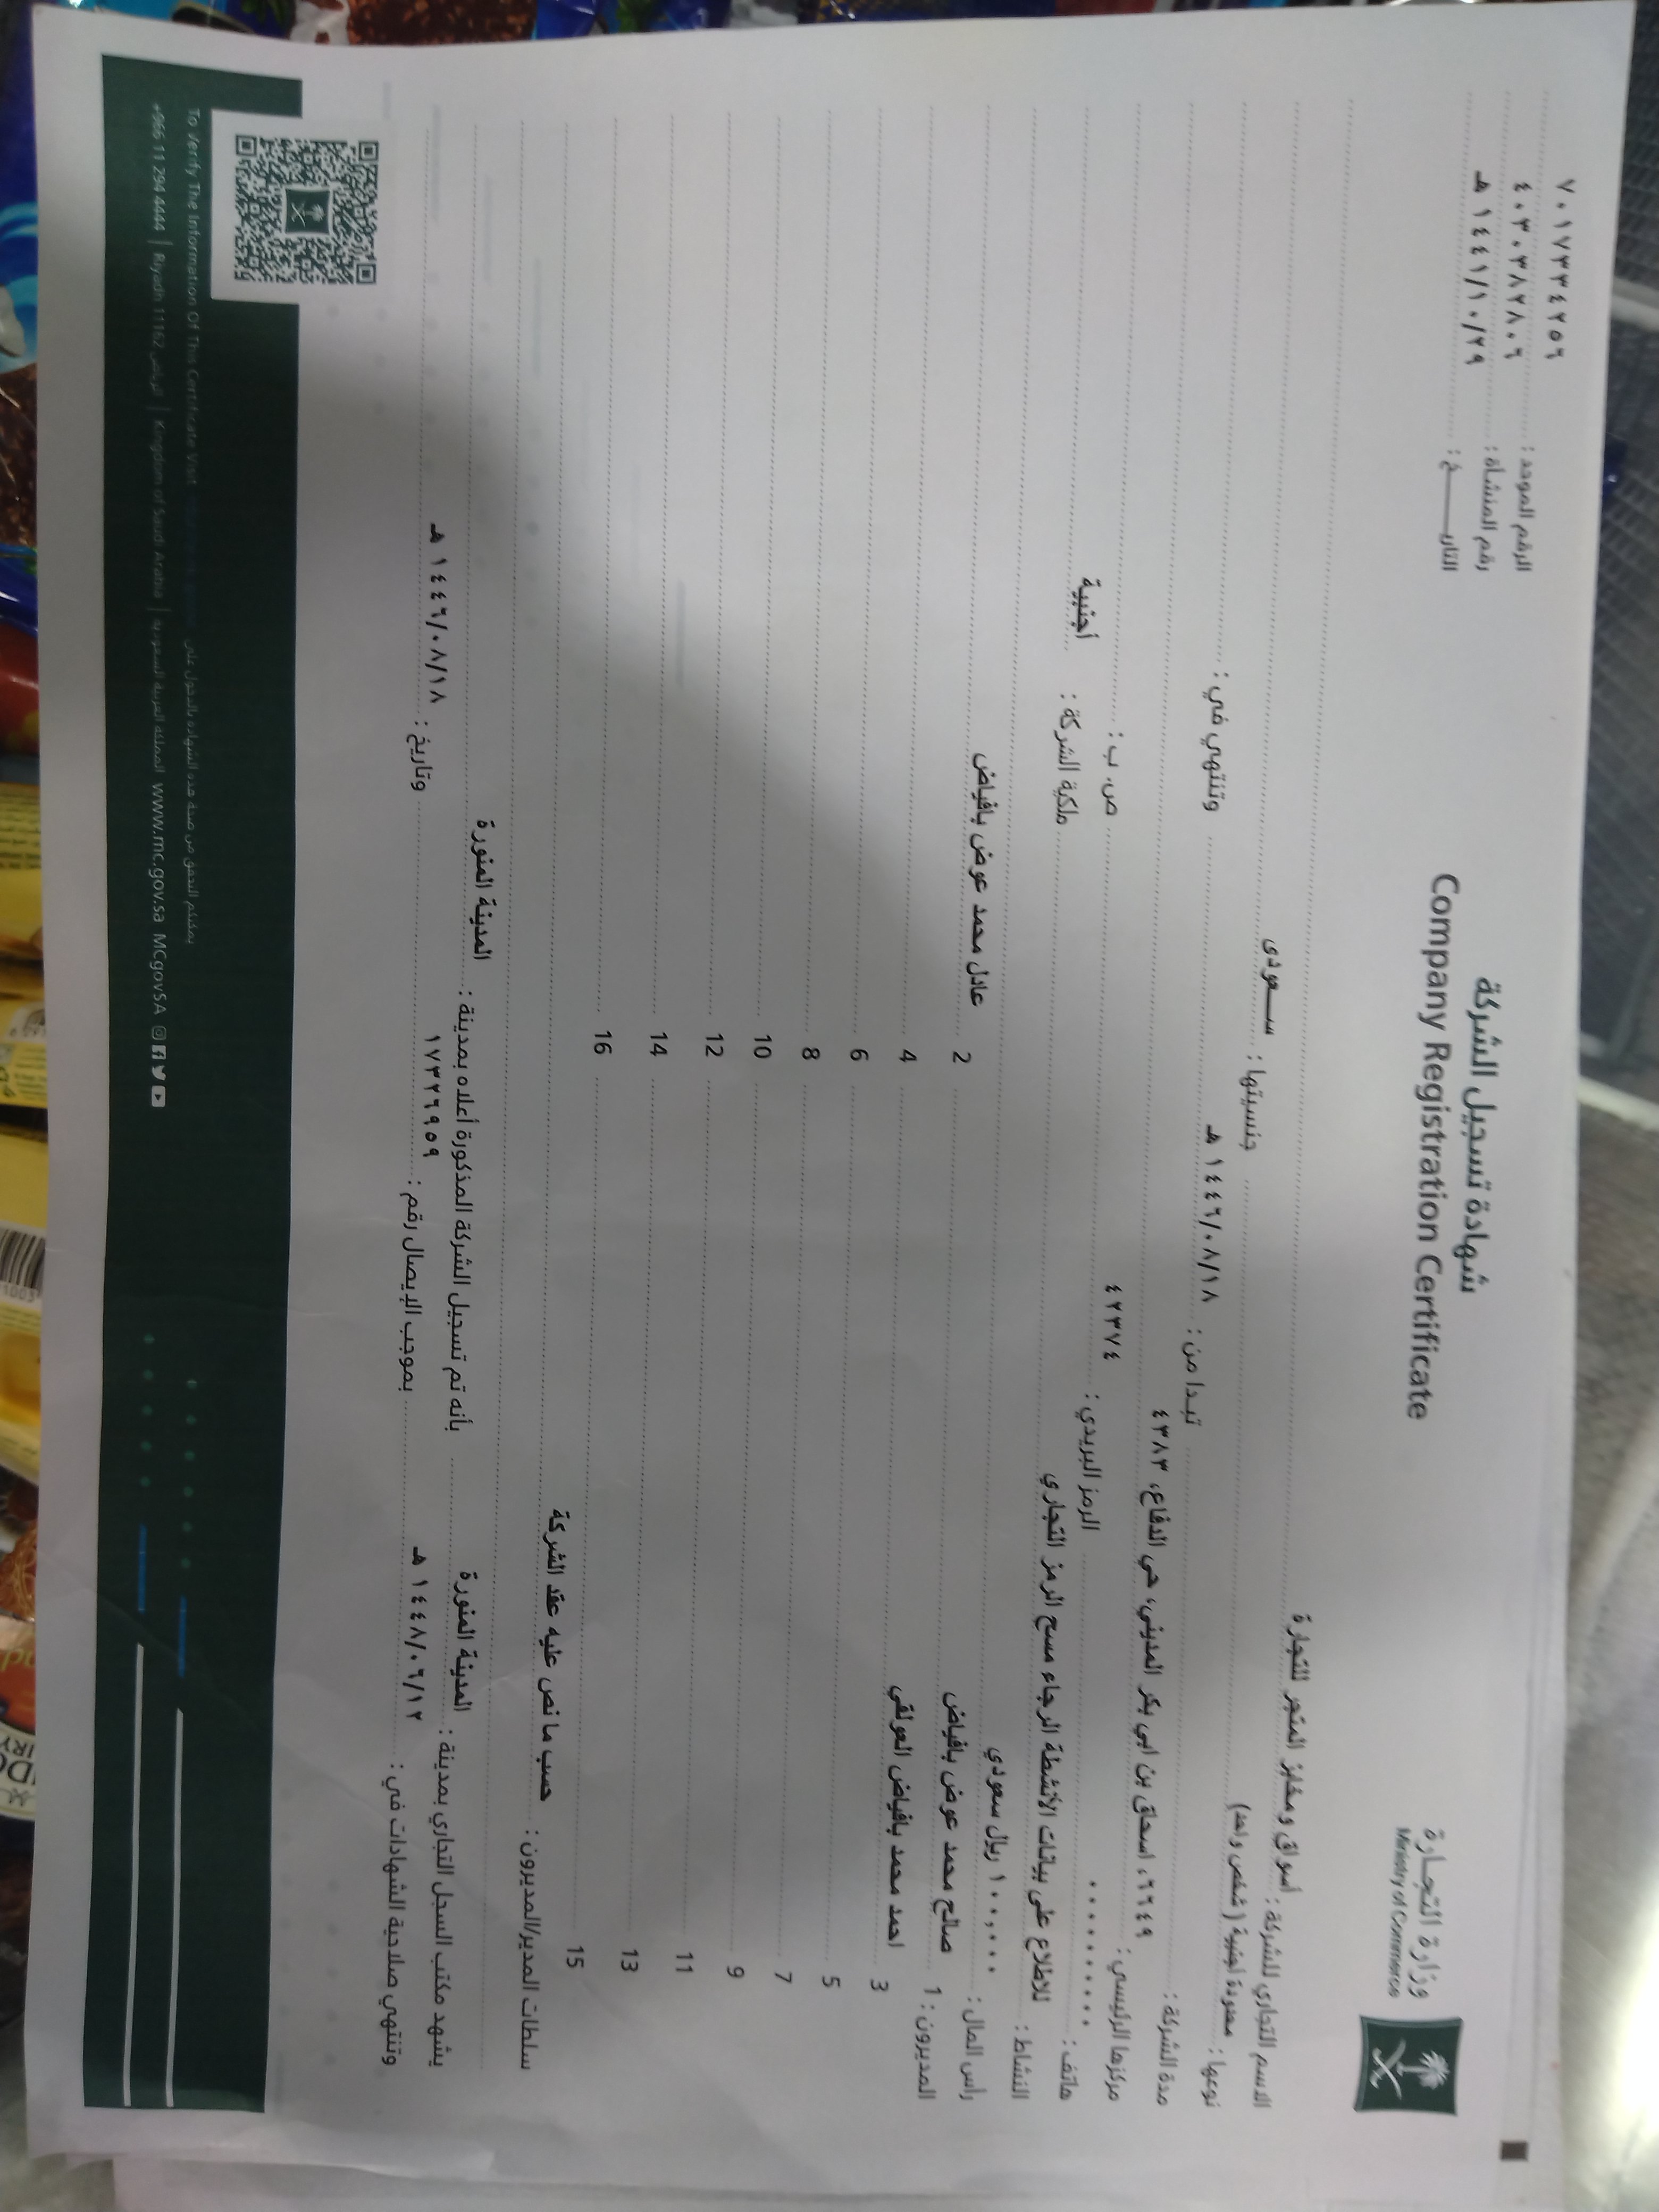 وزارة التجارة
Ministry of Commerce
شهادة تسجيل الشركة
Company Registration Certificate
الرقم الموحد : ٧٠١٧٣٣٤٢٥٦
رقم المنشأة : ٤٠٣٠٣٨٢٨٠٦
التاريـــــخ : ١٤٤١/١٠/٢٩ هـ
الاسم التجاري للشركة : أسواق ومخابز المتجر للتجارة
نوعها : محدودة اجنبية ( شخص واحد) جنسيتها : سعودى
مدة الشركة : تبدا من : ١٤٤٦/٠٨/١٨ هـ وتنتهي في :
مركزها الرئيسي : ٦٦٤٩، اسحاق بن ابي بكر المديني، حي الدفاع، ٤٣٨٣
هاتف : ٠٠٠٠٠٠٠٠٠ الرمز البريدي : ٤٢٣٧٤ ص. ب :
النشاط : للاطلاع على بيانات الأنشطة الرجاء مسح الرمز التجاري ملكية الشركة : أجنبية
رأس المال : ١٠٠,٠٠٠ ريال سعودي
المديرون : 1 صالح محمد عوض بافياض 2 عادل محمد عوض بافياض
3 احمد محمد بافياض العولقي 4
5 6
7 8
9 10
11 12
13 14
15 16
سلطات المدير/المديرون : حسب ما نص عليه عقد الشركة
يشهد مكتب السجل التجاري بمدينة : المدينة المنورة بأنه تم تسجيل الشركة المذكورة أعلاه بمدينة : المدينة المنورة
وتنتهي صلاحية الشهادات في : ١٤٤٨/٠٦/١٢ هـ بموجب الإيصال رقم : ١٧٣٢٦٩٥٩ وتاريخ : ١٤٤٦/٠٨/١٨ هـ
To Verify The Information Of This Certificate Visit يمكنكم التحقق من صحة هذه الشهادة بالدخول على
+966 11 294 4444 | Riyadh 11162 الرياض | Kingdom of Saudi Arabia | المملكة العربية السعودية www.mc.gov.sa MCgovSA